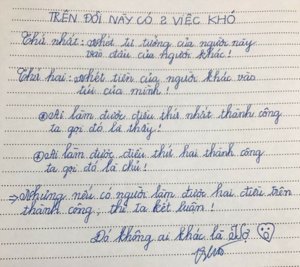 TRÊN ĐỜI NÀY CÓ 2 VIỆC KHÓ
Thứ nhất: Nhét tư tưởng của người này
vào đầu của người khác!
Thứ hai: Nhét tiền của người khác vào
túi của mình!
Ai làm được điều thứ nhất thành công
ta gọi đó là thầy!
Ai làm được điều thứ hai thành công
ta gọi đó là chủ!
→ Nhưng nếu có người làm được hai điều trên
thành công, thì ta kết luận!
Đó không ai khác là Vợ